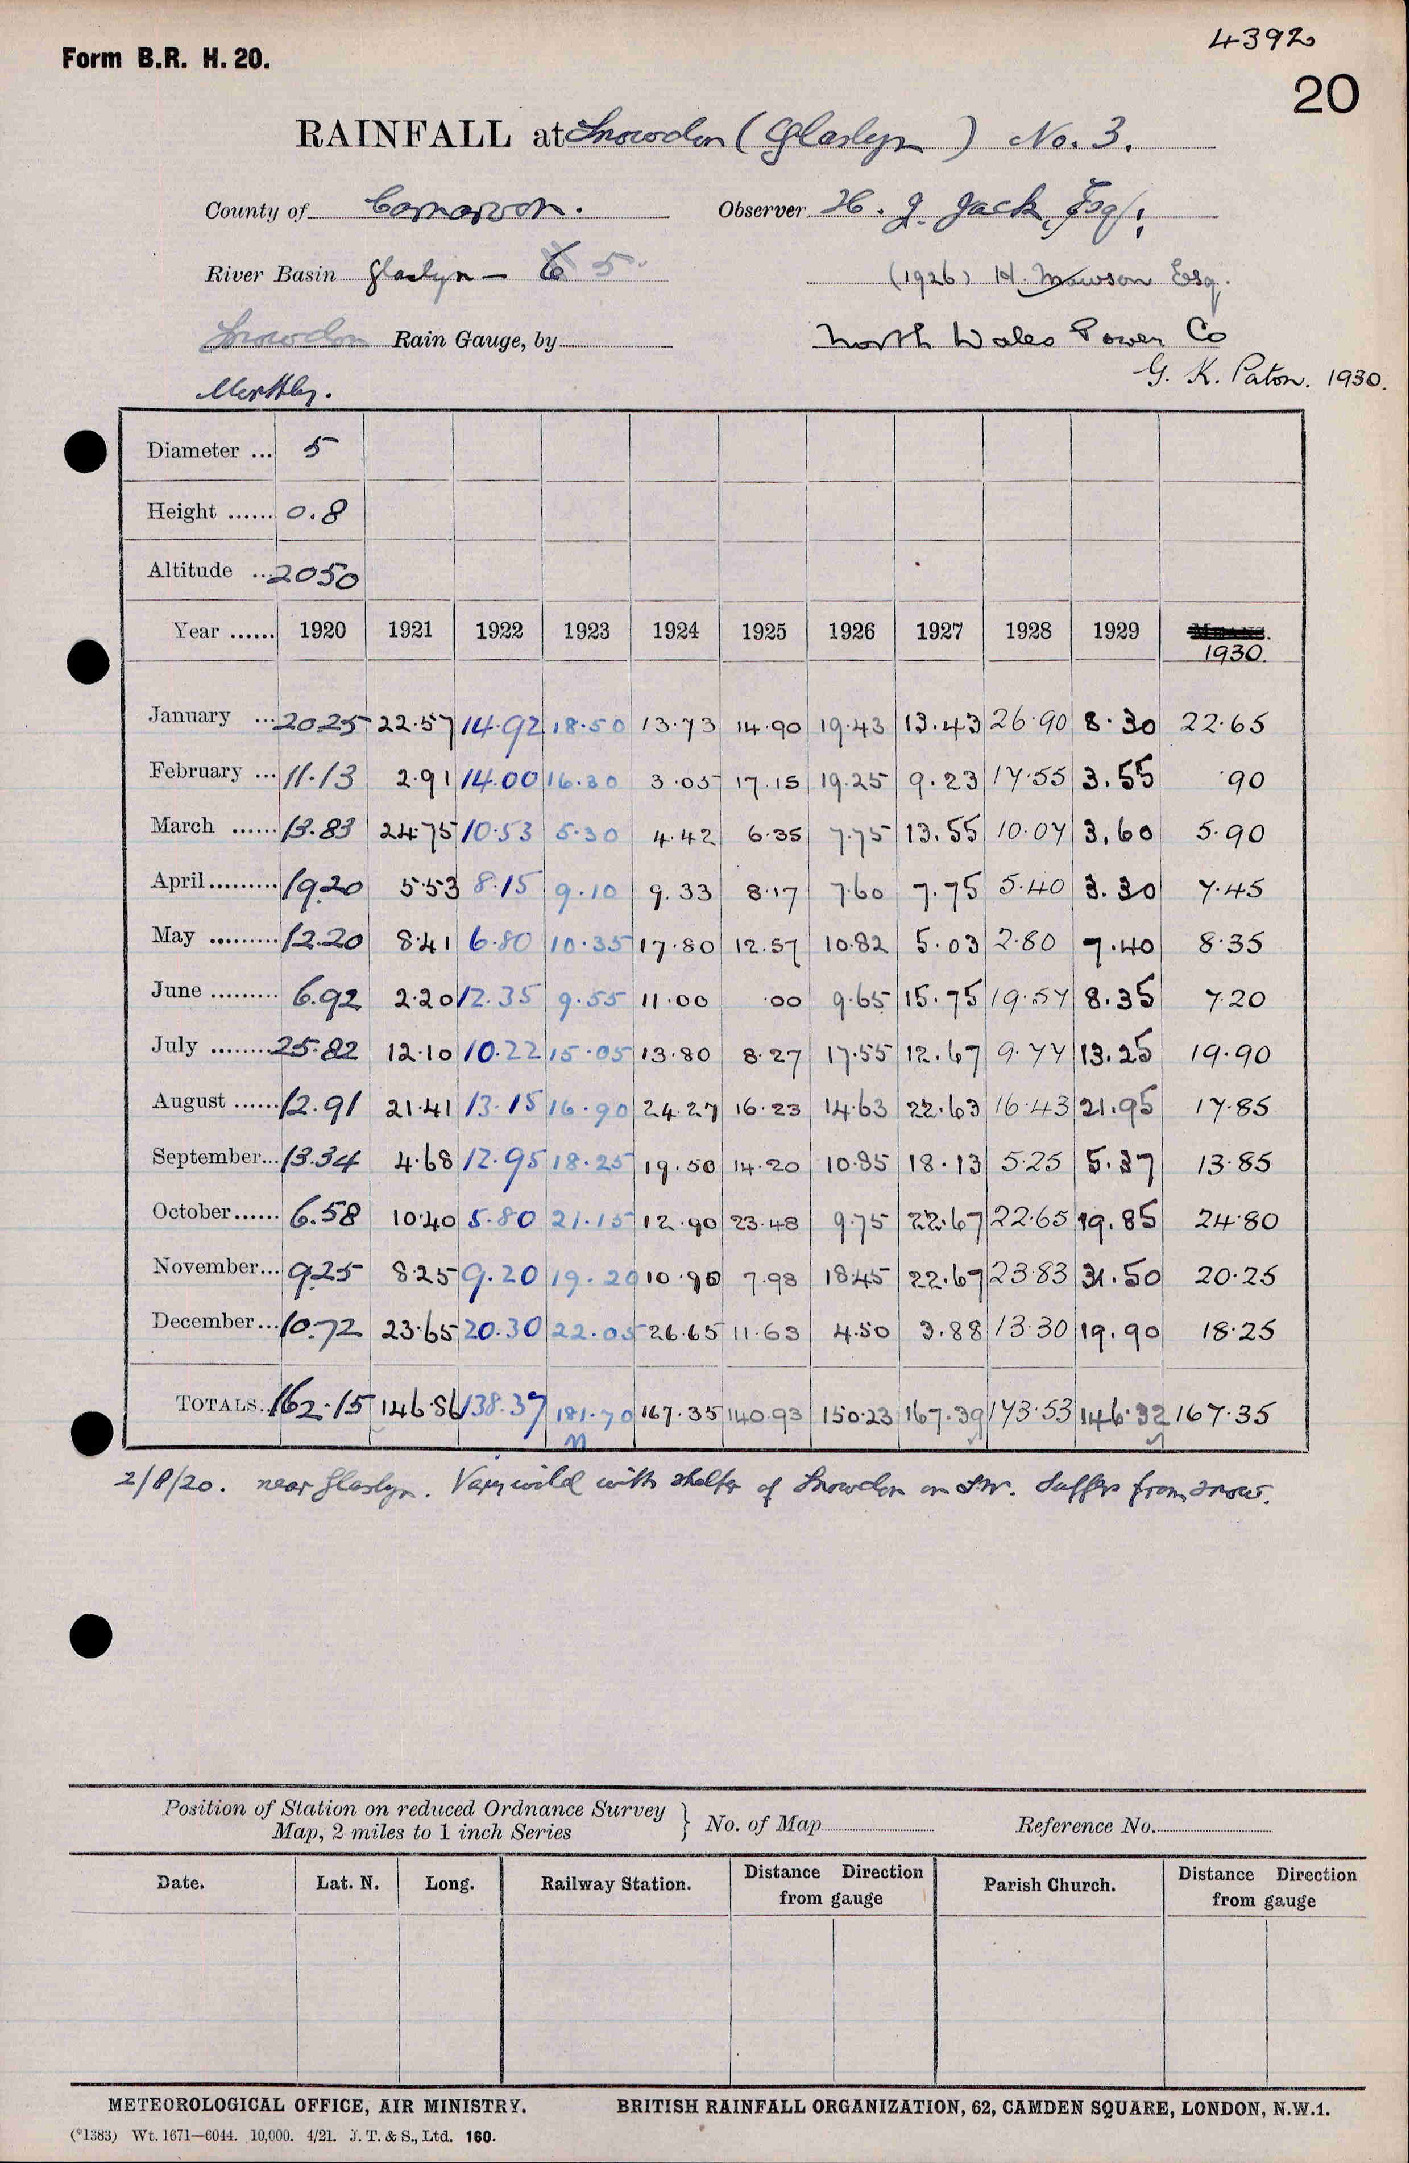 4392
Form B.R. H. 20.
20
RAINFALL at Snowdon (Glaslyn) No. 3.
County of Carnarvon. Observer H. J. Jack, Esq;
River Basin Glaslyn — 6 5. (1926) H. Mawson Esq.
Snowdon Rain Gauge, by North Wales Power Co
Monthly. G. K. Paton. 1930.
Diameter ... 5
Height ...... 0.8
Altitude ... 2050
Year ...... 1920 1921 1922 1923 1924 1925 1926 1927 1928 1929 1930.
January ... 20.25 22.57 14.92 18.50 13.73 14.90 19.43 13.43 26.90 8.30 22.65
February ... 11.13 2.91 14.00 16.30 3.05 17.15 19.25 9.23 17.55 3.55 .90
March ...... 13.83 24.75 10.53 5.30 4.42 6.35 7.75 13.55 10.07 3.60 5.90
April......... 19.20 5.53 8.15 9.10 9.33 8.17 7.60 7.75 5.40 3.30 7.45
May ......... 12.20 8.41 6.80 10.35 17.80 12.57 10.82 5.03 2.80 7.40 8.35
June ......... 6.92 2.20 12.35 9.55 11.00 .00 9.65 15.75 19.57 8.35 7.20
July ........ 25.82 12.10 10.22 15.05 13.80 8.27 17.55 12.67 9.77 13.25 19.90
August ...... 12.91 21.41 13.15 16.90 24.27 16.23 14.63 22.63 16.43 21.95 17.85
September... 13.34 4.68 12.95 18.25 19.50 14.20 10.85 18.13 5.25 5.37 13.85
October...... 6.58 10.40 5.80 21.15 12.90 23.48 9.75 22.67 22.65 19.85 24.80
November... 9.25 8.25 9.20 19.20 10.90 7.98 18.45 22.67 23.83 31.50 20.25
December... 10.72 23.65 20.30 22.05 26.65 11.63 4.50 3.88 13.30 19.90 18.25
TOTALS.. 162.15 146.86 138.37 181.70 167.35 140.93 150.23 167.39 173.53 146.32 167.35
2/8/20. near Glaslyn. Very wild with shelter of Snowdon on SW. Suffers from snow.
Position of Station on reduced Ordnance Survey
Map, 2 miles to 1 inch Series } No. of Map Reference No.
Date. Lat. N. Long. Railway Station. Distance Direction from gauge Parish Church. Distance Direction from gauge
METEOROLOGICAL OFFICE, AIR MINISTRY. BRITISH RAINFALL ORGANIZATION, 62, CAMDEN SQUARE, LONDON, N.W.1.
(*1383) Wt. 1671—6044. 10,000. 4/21. J. T. & S., Ltd. 160.